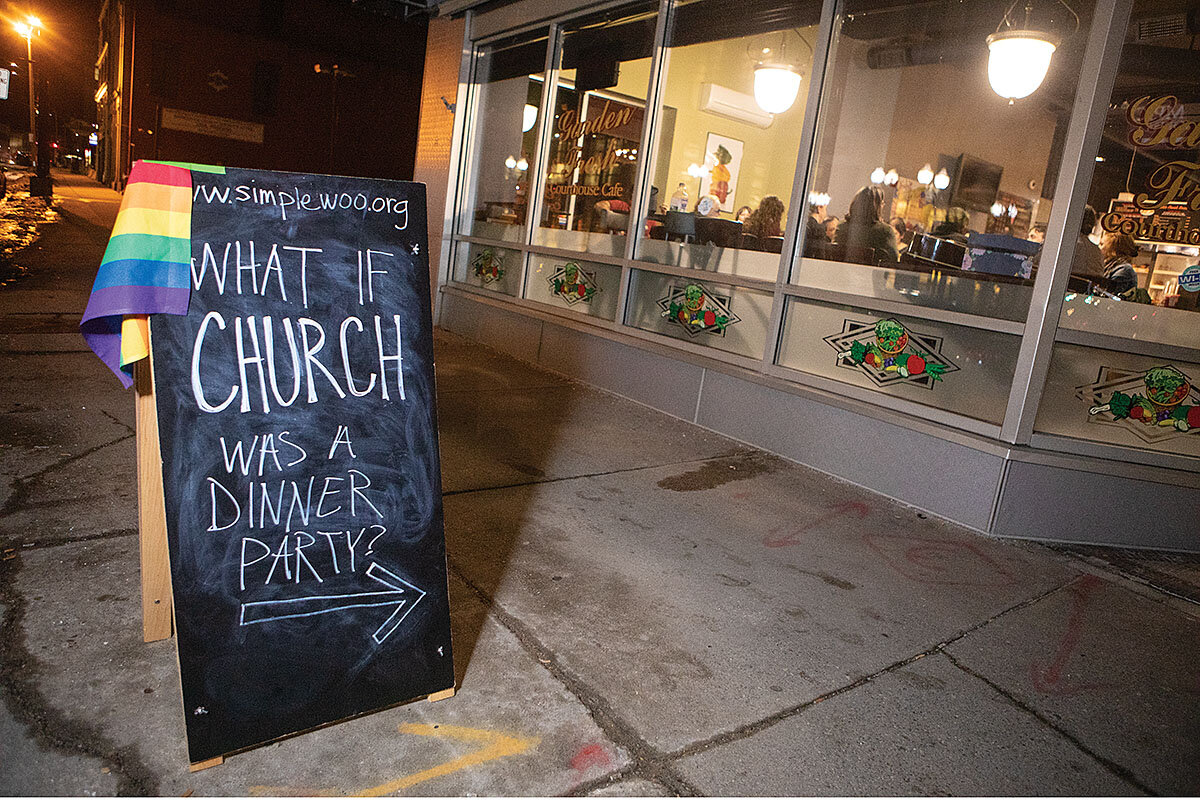 w.simplewoo.org
WHAT IF
CHURCH
WAS A
DINNER
PARTY?
Garden
Fresh
Courthouse Cafe
Ga
F
Courtho
WI-